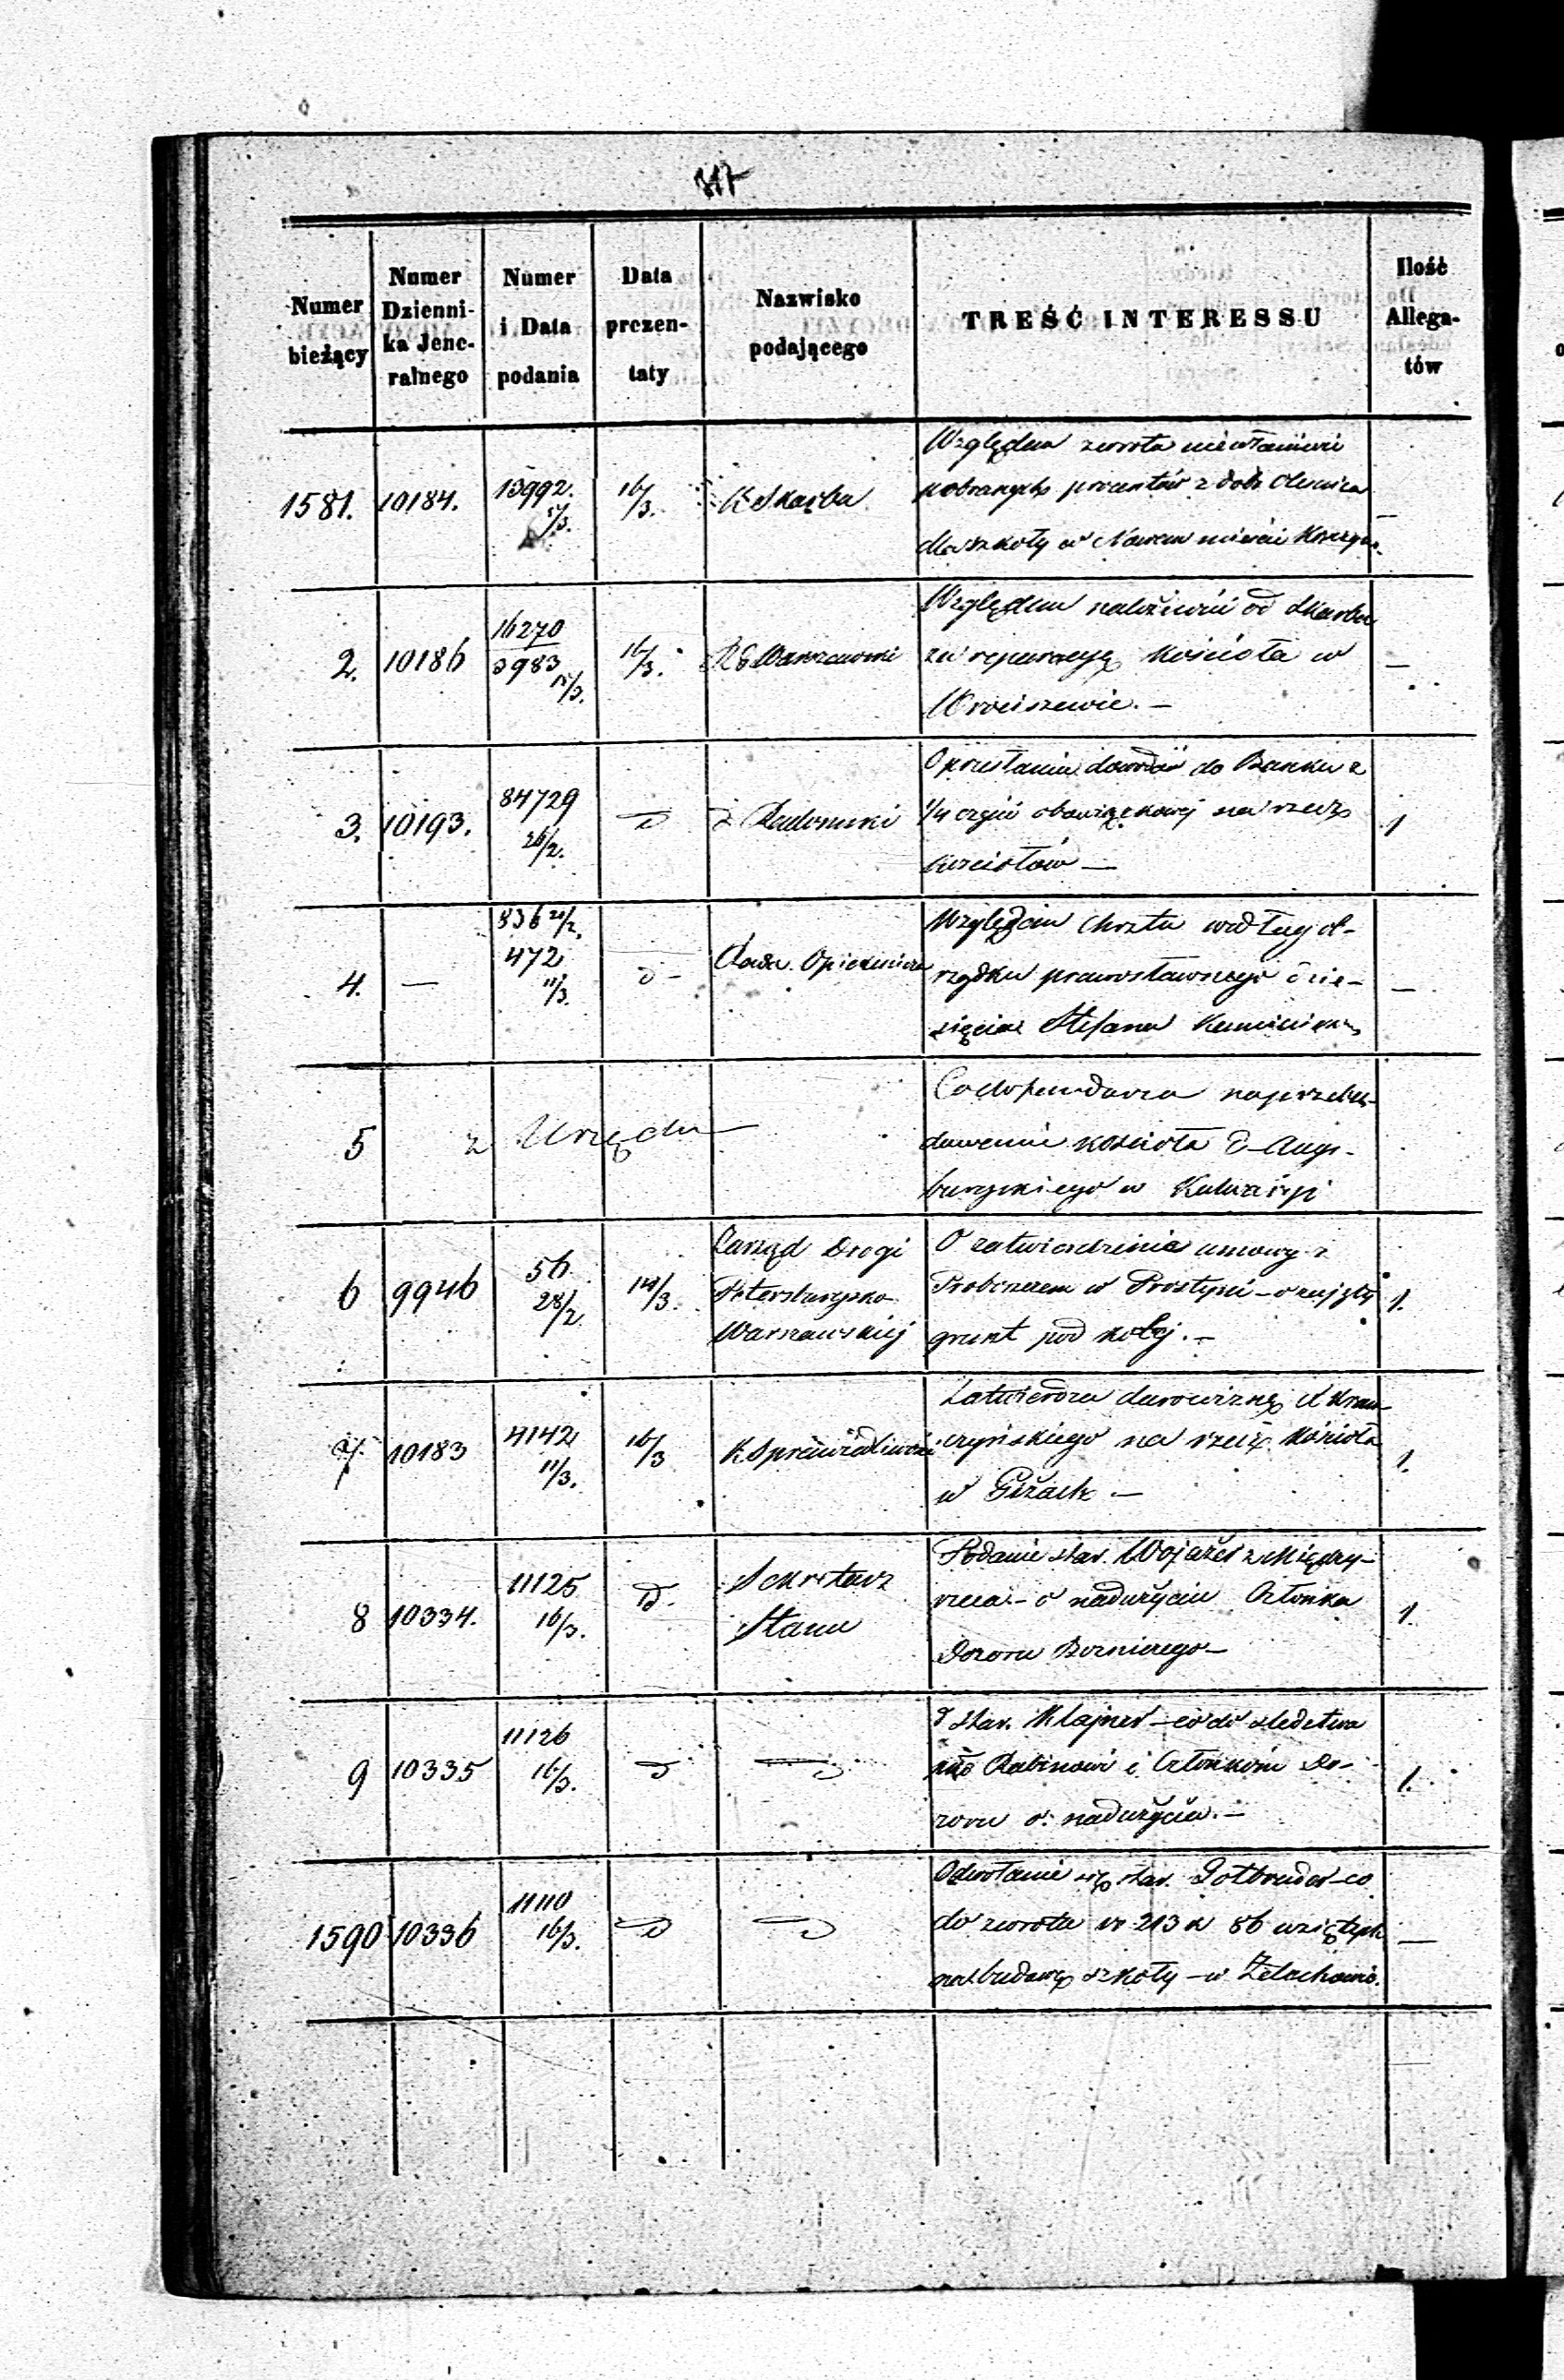 317
Numer bieżący
Numer Dzienni-ka Jene-ralnego
Numer i Data podania
Data prezen-taty
Nazwisko podającego
TREŚĆ INTERESSU
Ilość Allega-tów
1581. 10184. 13992. 16/3. K Skarbu
Względem zwrotu niewłaściwie
pobranych procentów z dóbr Oleśnica
dla szkoły w Nowem mieście —
2. 10186 16270 3983 15/3. 16/3. R G Warszawski
Względem należności od Skarbu
za reperacyę Kościoła w
Wrociszewie. — —
3. 10193. 84729 26/2. d d Radomski
O przesłaniu dowodów do Banku z
1/4 części obowiązkowej na rzecz
kościołów — 1
4. — 836 21/2. 472 11/3. d - Rada Opiekuńcza
Względem chrztu według ob-
rządku prawosławnego dzie-
cięcia Stefana —
5 z Urzędu —
Co do funduszu na przebu-
dowanie kościoła E-Augs-
burgskiego w Kalwaryi
6 9946 56 28/2. 14/3. Zarząd Drogi
Petersburgsko
Warszawskiej
O zatwierdzenie umowy z
Proboszczem w Prostyni - o zajęty
grunt pod kolej. — 1.
7 10183 4142 11/3. 16/3 K Sprawiedliwości
Zatwierdza darowiznę Kraw-
czyńskiego na rzecz Kościoła
w Giżach — 1.
8 10334. 11125 16/3. d. Sekretarz
Stanu
Podanie star. Wojażer z Między-
rzeca - o nadużyciu Członka
Dozoru Bożniczego — 1.
9 10335 11126 16/3. d —
d star. Klajner - co do śledztwa
Rabinowi i Członkom Do-
zoru o nadużycia. — 1.
1590 10336 11110 16/3. d —
Odwołanie się star. Gotbruder - co
do zwrotu rs 213 k 86 wziętych
na budowę szkoły - w Żelechowie. —